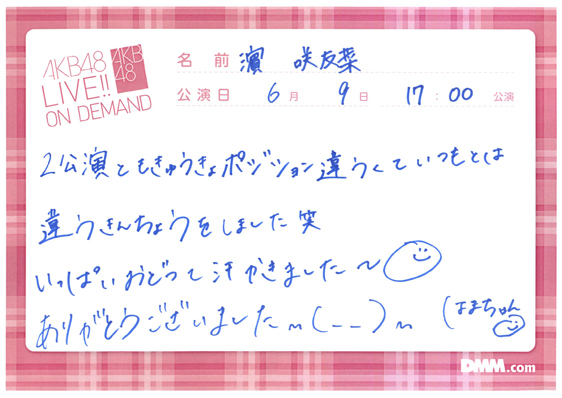 AKB48
LIVE!!
ON DEMAND
AKB
48
名前 濵 咲友菜
公演日 6月 9日 17:00 公演
2公演ともきゅうきょポジション違うくていつもとは
違うきんちょうをしました笑
いっぱいおどって汗かきました〜
ありがとうございましたm(--)m (はまちゃん
DMM.com